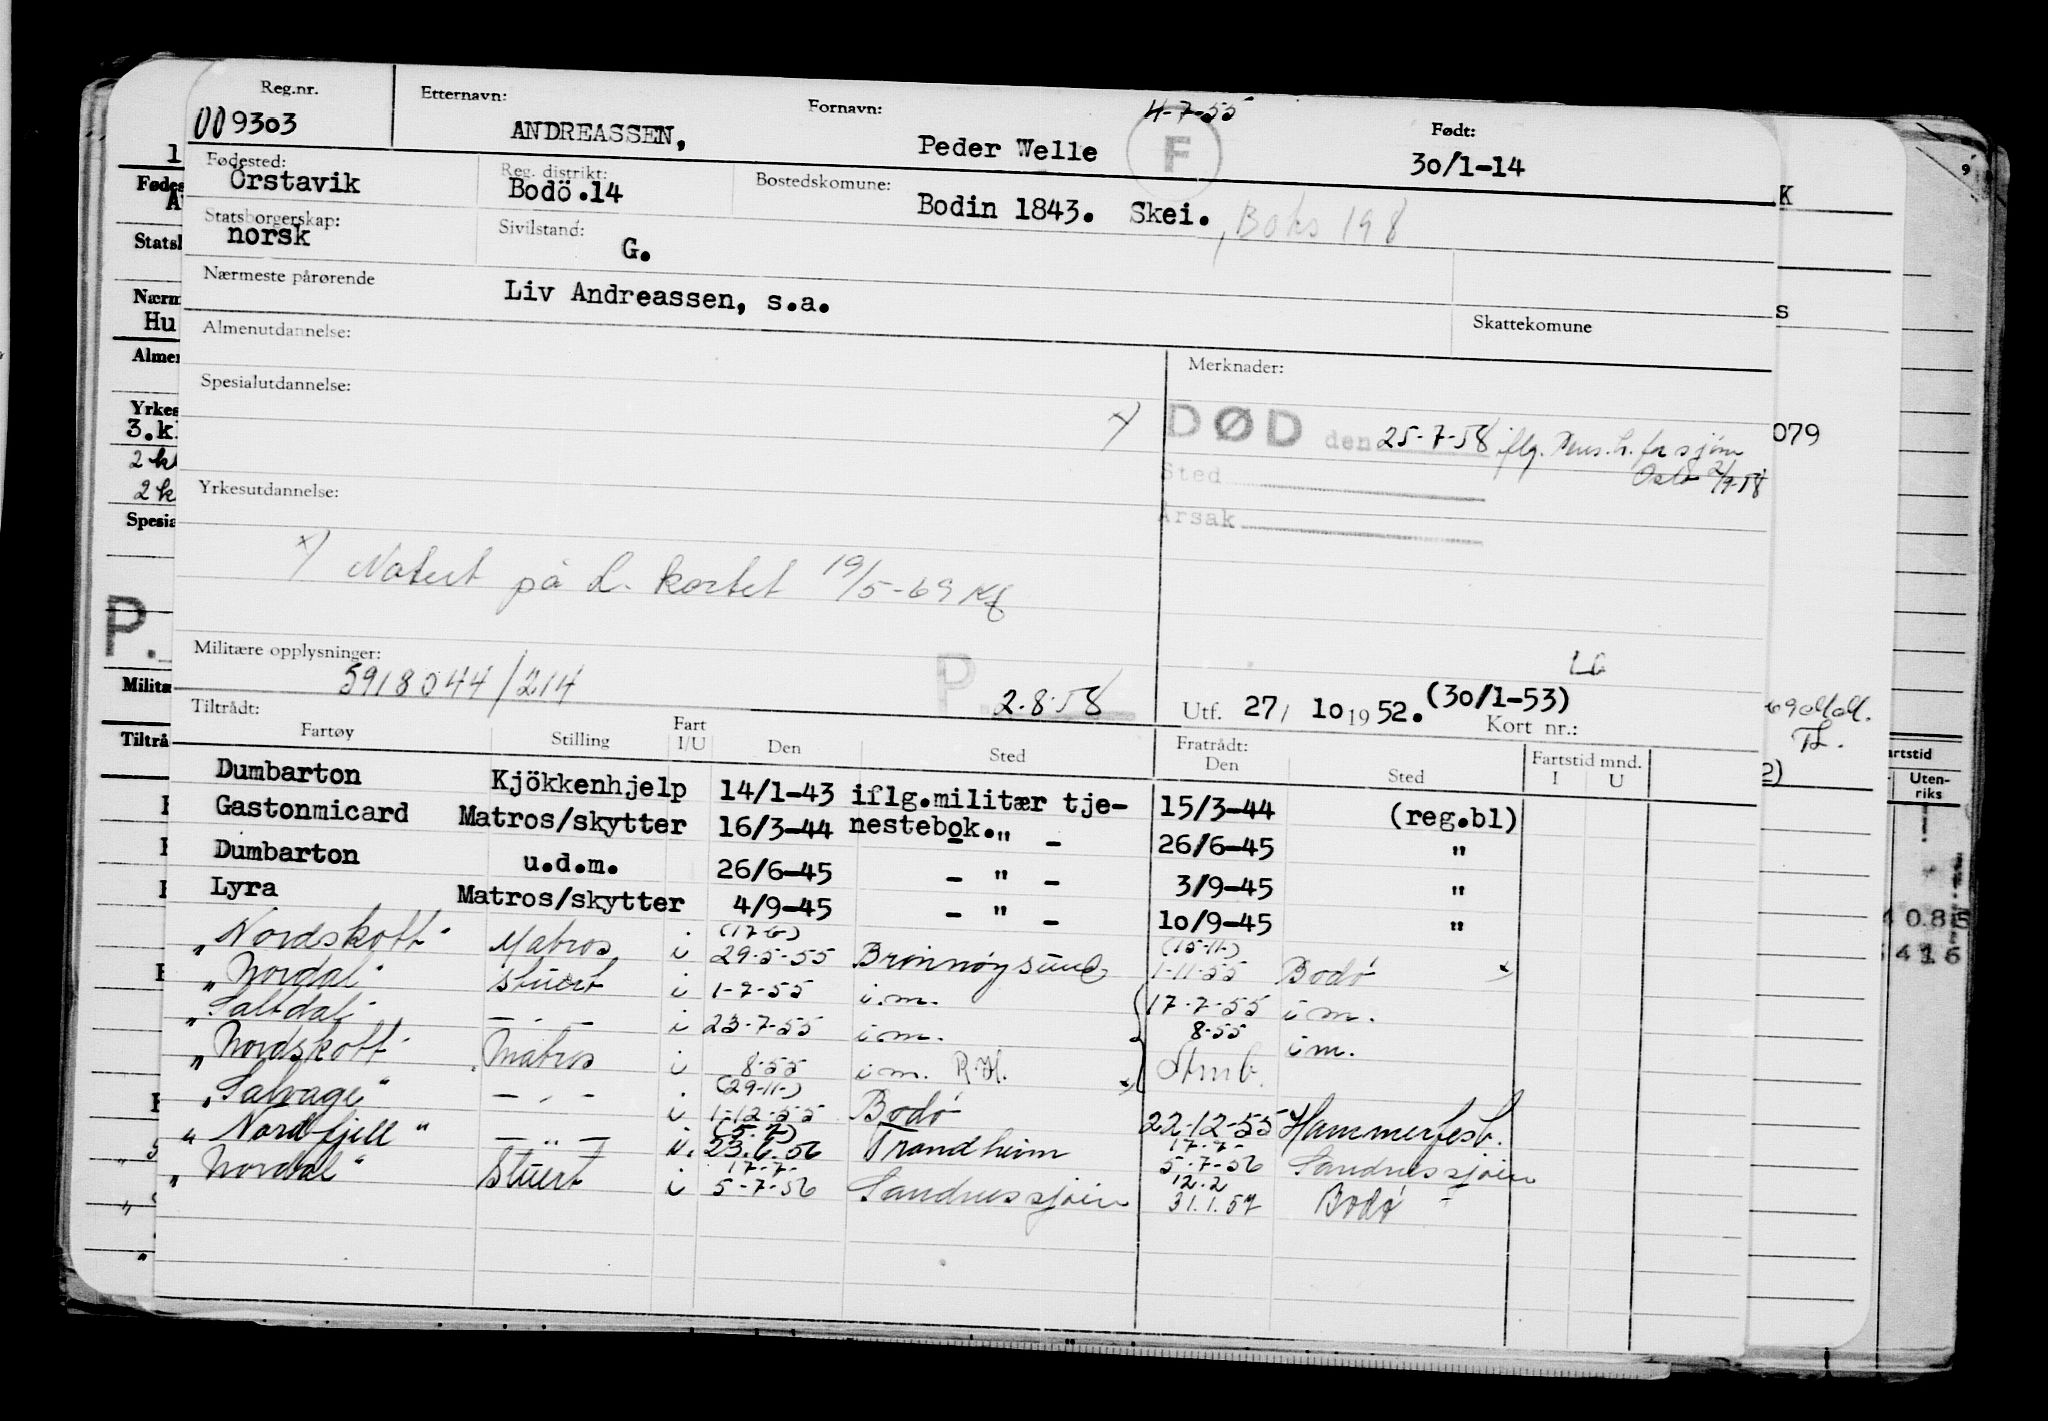 Reg.nr. Etternavn: Fornavn: 4-7-55 Født:
009303 ANDREASSEN, Peder Welle F 30/1-14
Fødested: Reg. distrikt: Bostedskomune:
Örstavik Bodö.14 Bodin 1843. Skei. , Boks 198
Statsborgerskap: Sivilstand:
norsk G.
Nærmeste pårørende Liv Andreassen, s.a.
Almenutdannelse: Skattekomune
Spesialutdannelse: Merknader:
x) DØD den 25-7-58 iflg. Pens. h. for sjøm
Sted Oslo 2/9-58
Yrkesutdannelse: Årsak
x) Notert på L. kortet 19/5-69 Kf
Militære opplysninger: LG
5918044/214 P. 2.8.58 Utf. 27/ 10 1952. (30/1-53)
Tiltrådt: Kort nr.:
Fartøy Stilling Fart I/U Den Sted Fratrådt: Den Sted Fartstid mnd. I U
Dumbarton Kjökkenhjelp 14/1-43 iflg.militær tje- 15/3-44 (reg.bl)
Gastonmicard Matros/skytter 16/3-44 nestebok. - " - 26/6-45 "
Dumbarton u.d.m. 26/6-45 - " - 3/9-45 "
Lyra Matros/skytter 4/9-45 - " - 10/9-45 "
(17-6) (15-11-)
"Nordskott" Matros i 29-5-55 Brønnøysund 1-11-55 Bodø x
"Nordal" stuert i 1-7-55 i.m. 17-7-55 i m.
"Saltdal" - " - i 23-7-55 i m. 8-55 i m.
"Nordskott" Matros i 8-55 i m. R.H. Atmb.
(29-11-)
"Salvage" - " - i 1-12-55 Bodø 22-12-55 Hammerfest.
(5.7) 17-7-
"Nordfjell" - " - i. 23.6.56 Trondheim 5-7-56 Sandnessjøen
17-7- 12.2
"Nordal" Stuert i 5-7-56 Sandnessjøen 31.1.57 Bodø
Statsb
Hu
3.kl
2 k
2 k
P.
Milita
Tiltrå
K
s
079
69
TL.
artstid
Uten-
riks
40.85
416
9